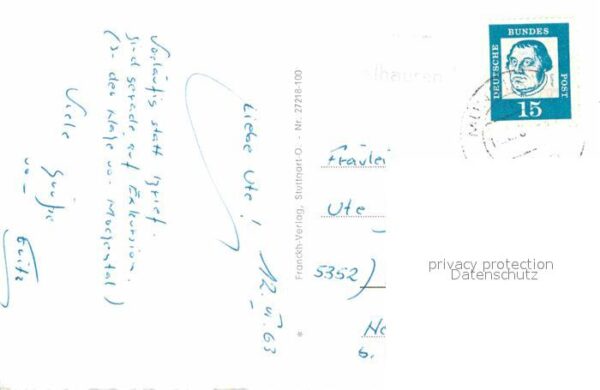 Liebe Ute!
12.VI.63
Vorläufig statt Brief.
Sind gerade auf Exkursion.
(In der Nähe von
Viele
Grüße
von
Fritz
Franckh-Verlag, Stuttgart-O. - Nr. 27218-100
DEUTSCHE BUNDES POST
15
Fräulei
Ute
5352)
privacy protection
Datenschutz